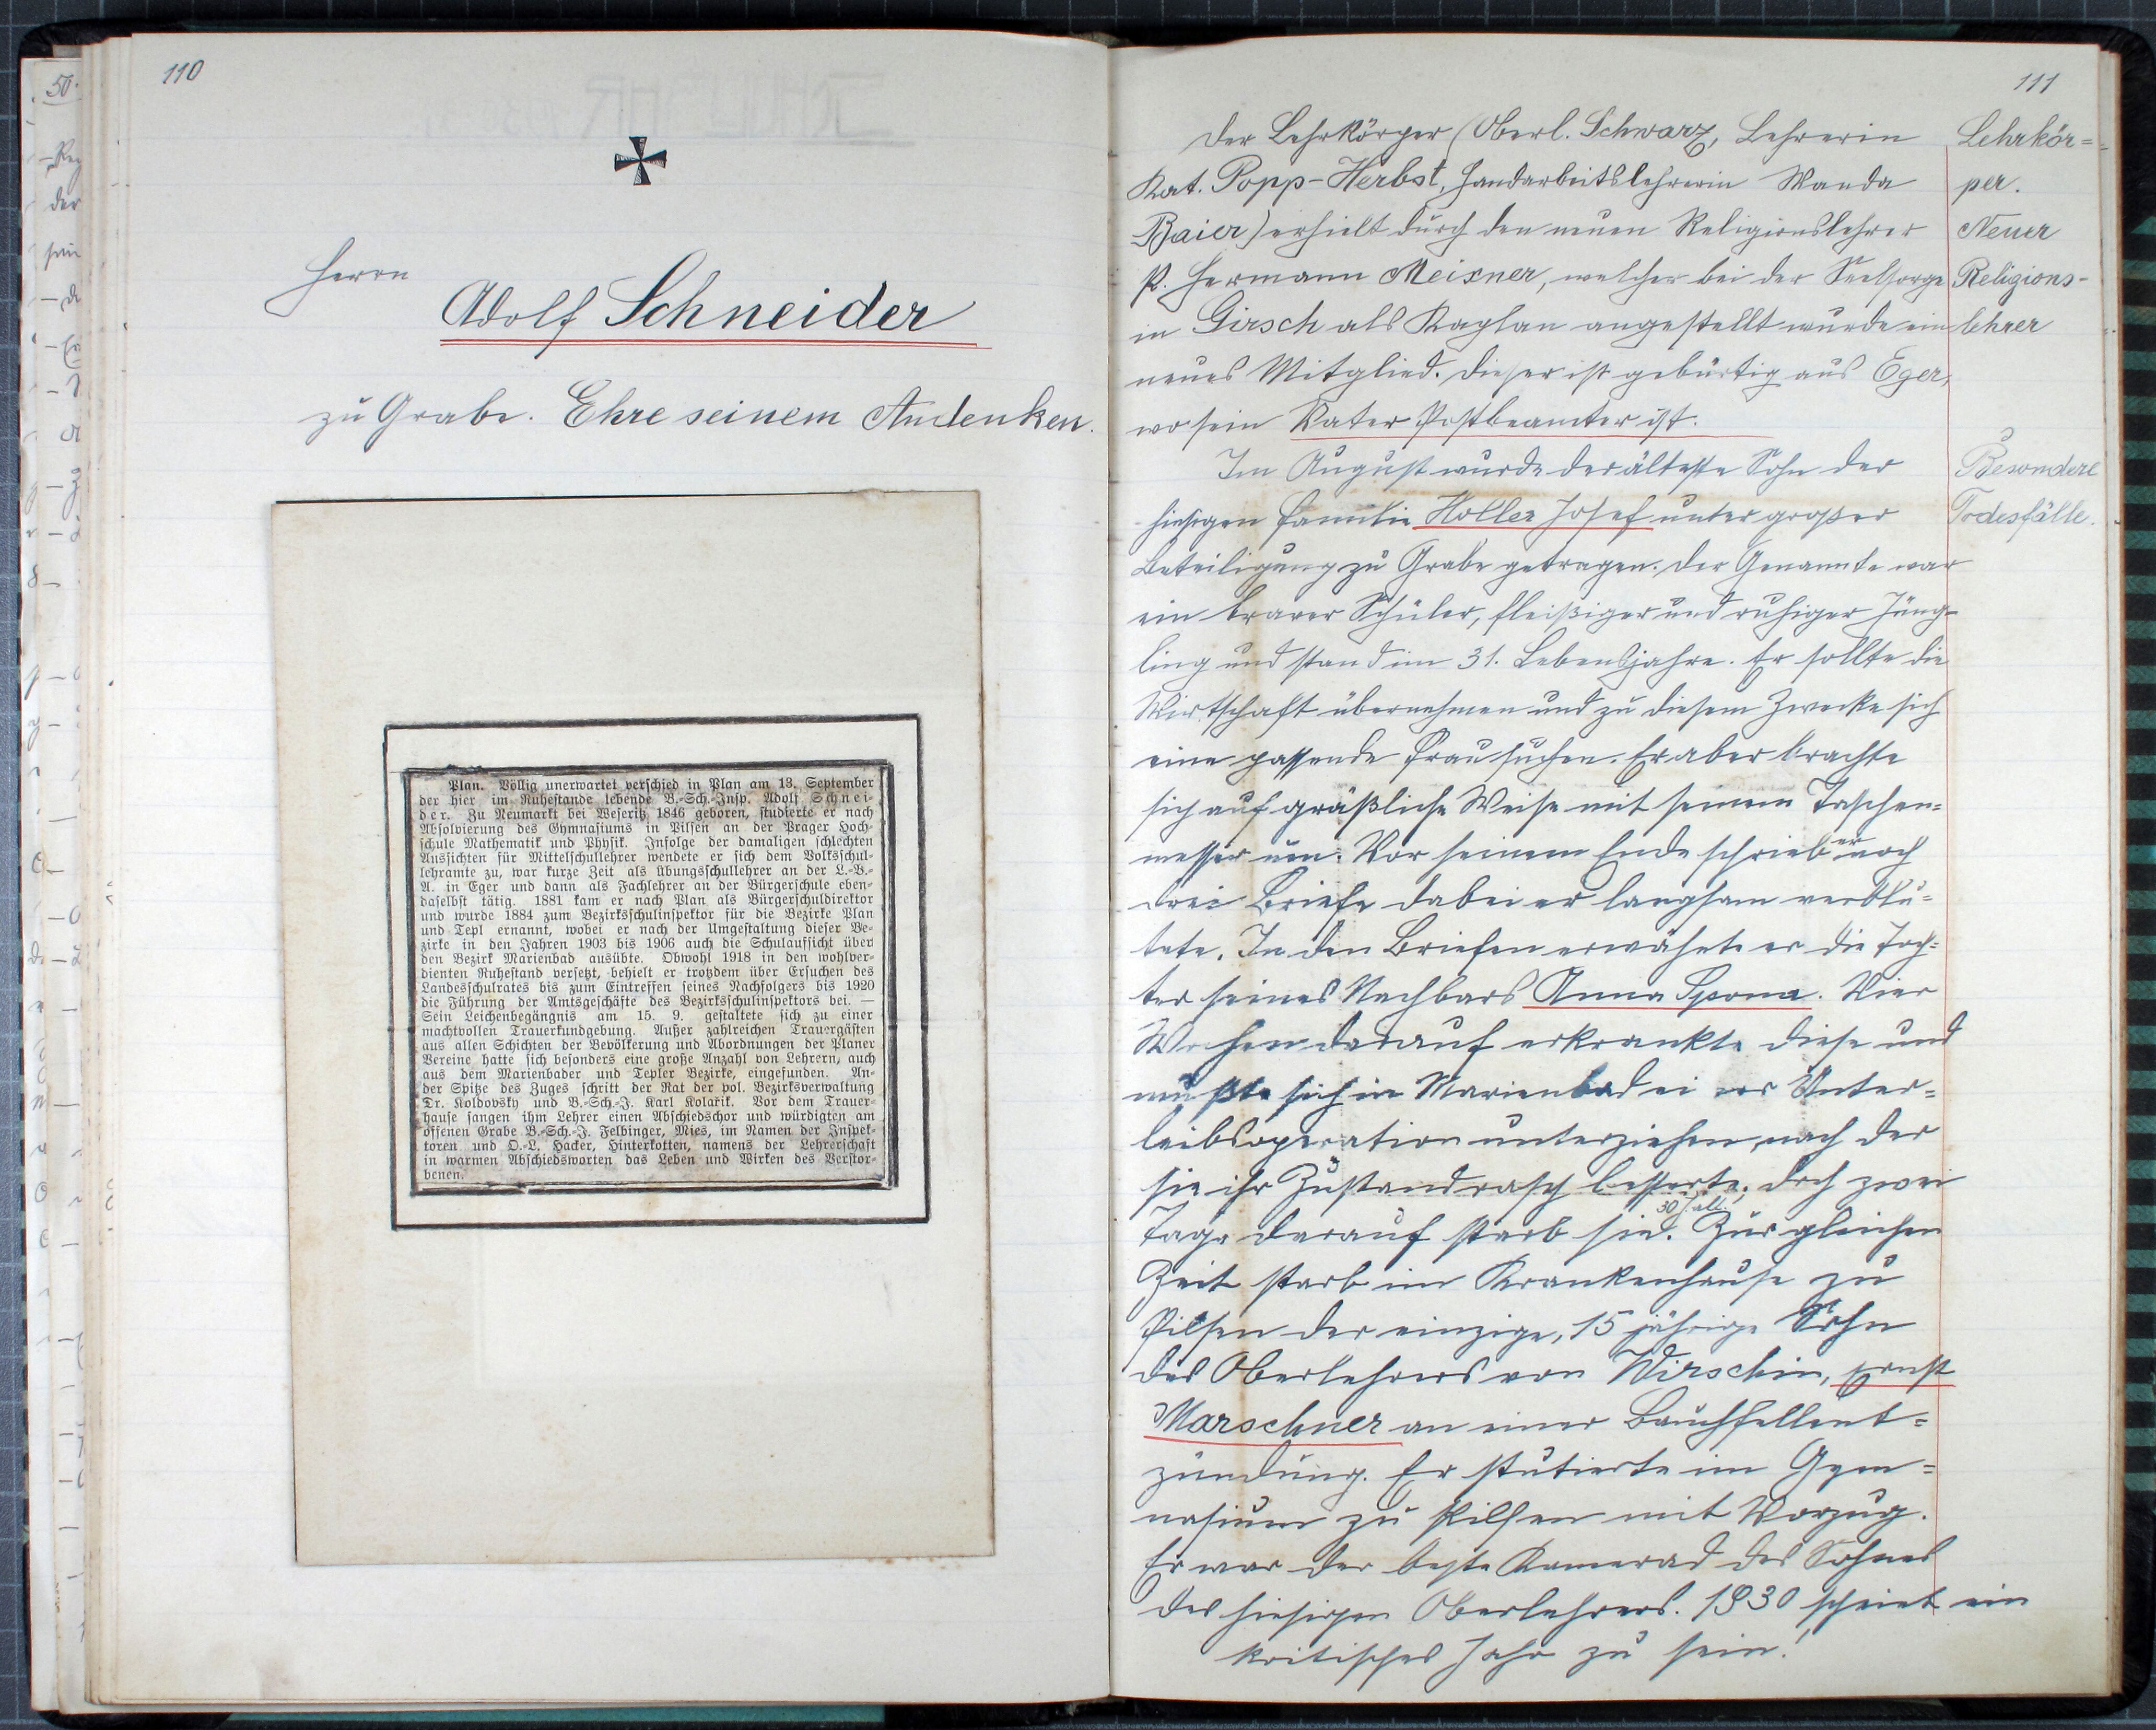 110
Herrn
Adolf Schneider
zu Grabe. Ehre seinem Andenken.
Plan. Völlig unerwartet verschied in Plan am 13. September
der hier im Ruhestande lebende B.-Sch.-Insp. Adolf Schnei-
der. Zu Neumarkt bei Weseritz 1846 geboren, studierte er nach
Absolvierung des Gymnasiums in Pilsen an der Prager Hoch-
schule Mathematik und Physik. Infolge der damaligen schlechten
Aussichten für Mittelschullehrer wendete er sich dem Volksschul-
lehramte zu, war kurze Zeit als Übungsschullehrer an der L.-B.-
A. in Eger und dann als Fachlehrer an der Bürgerschule eben-
daselbst tätig. 1881 kam er nach Plan als Bürgerschuldirektor
und wurde 1884 zum Bezirksschulinspektor für die Bezirke Plan
und Tepl ernannt, wobei er nach der Umgestaltung dieser Be-
zirke in den Jahren 1903 bis 1906 auch die Schulaufsicht über
den Bezirk Marienbad ausübte. Obwohl 1918 in den wohlver-
dienten Ruhestand versetzt, behielt er trotzdem über Ersuchen des
Landesschulrates bis zum Eintreffen seines Nachfolgers bis 1920
die Führung der Amtsgeschäfte des Bezirksschulinspektors bei. —
Sein Leichenbegängnis am 15. 9. gestaltete sich zu einer
machtvollen Trauerkundgebung. Außer zahlreichen Trauergästen
aus allen Schichten der Bevölkerung und Abordnungen der Planer
Vereine hatte sich besonders eine große Anzahl von Lehrern, auch
aus dem Marienbader und Tepler Bezirke, eingefunden. An-
der Spitze des Zuges schritt der Rat der pol. Bezirksverwaltung
Dr. Koldovsky und B.-Sch.-J. Karl Kolařik. Vor dem Trauer-
hause sangen ihm Lehrer einen Abschiedschor und würdigten am
offenen Grabe B.-Sch.-J. Felbinger, Mies, im Namen der Inspek-
toren und O.-L. Hacker, Hinterkotten, namens der Lehrerschaft
in warmen Abschiedsworten das Leben und Wirken des Verstor-
benen.
111
Der Lehrkörper (Oberl. Schwarz, Lehrerin
Kat. Popp-Herbst, Handarbeitslehrerin Wanda
Baier) erhielt durch den neuen Religionslehrer
P. Hermann Meixner, welcher bei der Seelsorge
in Girsch als Kaplan angestellt wurde ein
neues Mitglied. Dieser ist gebürtig aus Eger,
wo sein Vater Postbeamter ist.
Im August wurde der älteste Sohn der
hiesigen Familie Holler Josef unter großer
Beteiligung zu Grabe getragen. Der Genannte war
ein braver Schüler, fleißiger und ruhiger Jüng-
ling und stand im 31. Lebensjahre. Er sollte die
Wirtschaft übernehmen und zu diesem Zwecke sich
eine passende Frau suchen. Er aber brachte
sich auf gräßliche Weise mit seinem Taschen=
messer um. Vor seinem Ende schrieb er noch
drei Briefe dabei er langsam verblu=
tete. In den Briefen erwähnte er die Toch=
ter seines Nachbars Anna Spona. Vier
Wochen darauf erkrankte diese und
mußte sich in Marienbad einer Unter=
leibsoperation unterziehen, nach der
sie ihr Zustand rasch besserte; doch zwei
Tage darauf starb sie. 30 J. alt. Zur gleichen
Zeit starb im Krankenhause zu
Pilsen der einzige, 15 jährige Sohn
des Oberlehrers von Wirschin, Ernst
Marschner an einer Bauchfellent=
zündung. Er stutierte im Gym=
nasium zu Pilsen mit Vorzug.
Er war der beste Kamerad des Sohnes
des hiesigen Oberlehrers. 1930 scheint ein
kritisches Jahr zu sein!
Lehrkör=
per.
Neuer
Religions-
lehrer
Besondere
Todesfälle.